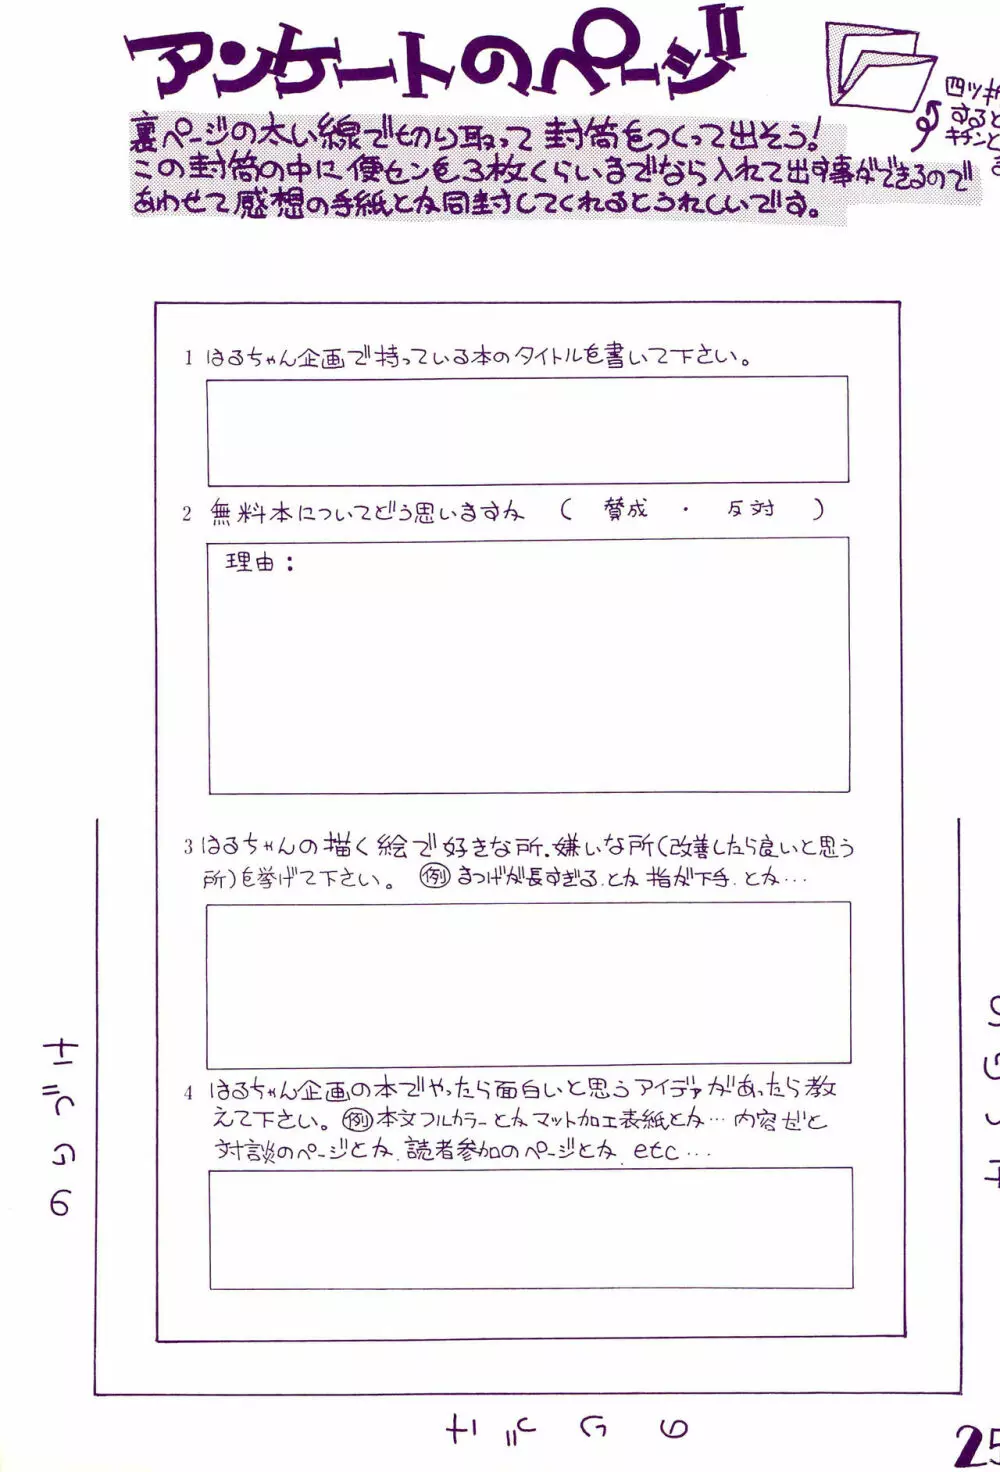 アンケートのページ
四ツ折
すると
キチンと
裏ページの太い線で切り取って封筒をつくって出そう!
この封筒の中に便センを3枚くらいまでなら入れて出す事ができるので
あわせて感想の手紙とか同封してくれるとうれしいです。
1 はるちゃん企画で持っている本のタイトルを書いて下さい。
2 無料本についてどう思いますか ( 賛成 ・ 反対 )
理由:
3 はるちゃんの描く絵で好きな所、嫌いな所(改善したら良いと思う
所)を挙げて下さい。 例 まつげが長すぎる、とか 指が下手、とか…
4 はるちゃん企画の本でやったら面白いと思うアイデアがあったら教
えて下さい。 例 本文フルカラーとかマット加工表紙とか… 内容だと
対談のページとか、読者参加のページとか、etc…
キじしろ
のりしろ
のりしろ
25